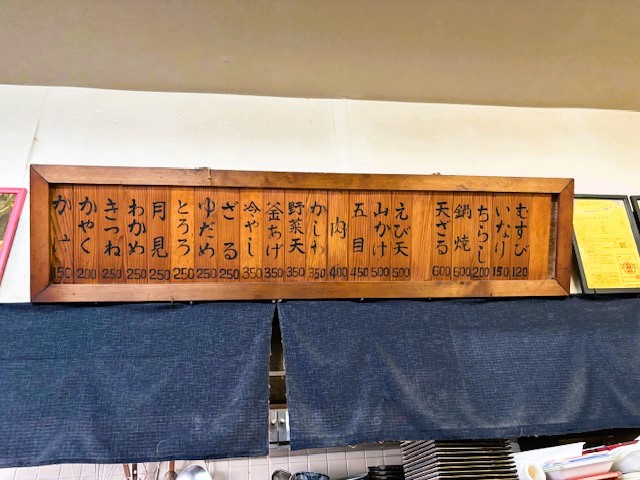 むすび 120
いなり 150
ちらし 200
鍋焼 600
天ざる 600
えび天 500
山かけ 500
五目 450
肉 400
かしわ 350
野菜天 350
釜あげ 350
冷やし 350
ざる 250
ゆだめ 250
とろろ 250
月見 250
わかめ 250
きつね 250
かやく 200
かけ 150